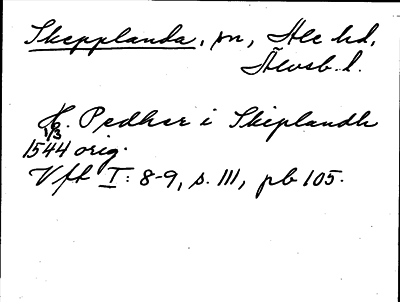 Skepplanda, sn, Ale hd,
Älvsb. l.
H. Pedhær i Skiplandh
1/3
1544 orig.
Vfh I: 8-9, s. 111, pb 105.